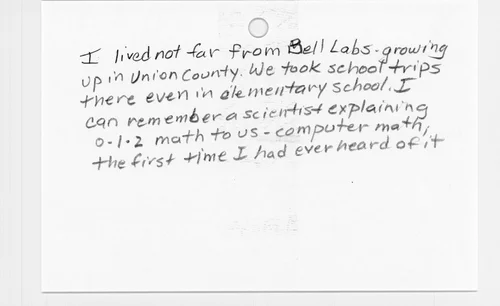 I lived not far from Bell Labs-growing
up in Union County. We took school trips
there even in elementary school. I
can remember a scientist explaining
0-1-2 math to us - computer math,
the first time I had ever heard of it